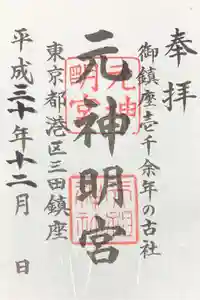 奉拝
御鎮座壱千余年の古社
元神明宮
東京都港区三田鎮座
平成三十年十二月 日
元神明宮